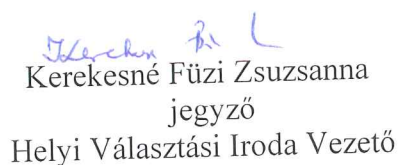 Kerekesné Füzi Zsuzsanna
jegyző
Helyi Választási Iroda Vezető